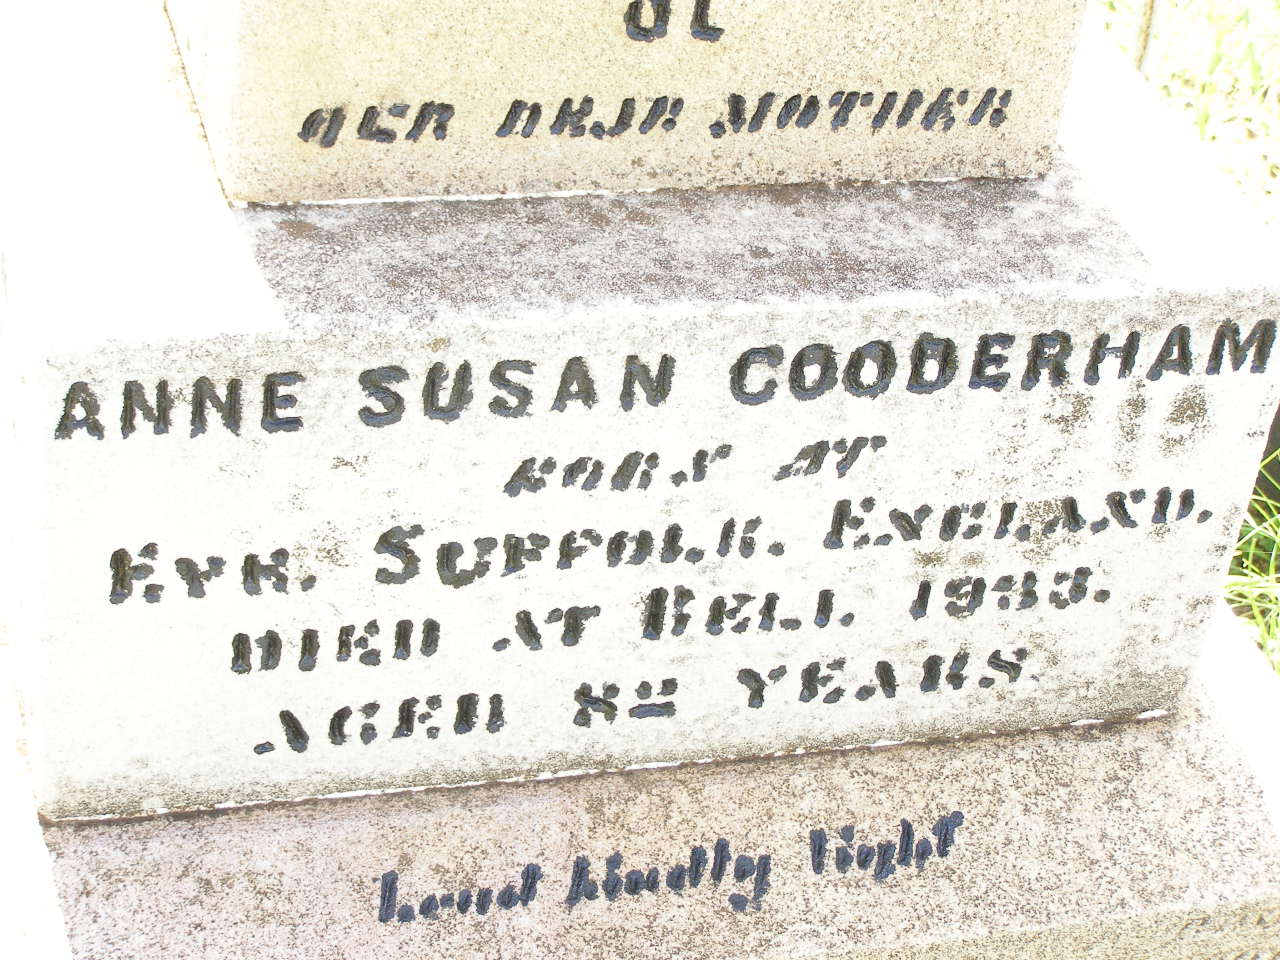 of
OUR DEAR MOTHER
ANNE SUSAN COODERHAM
BORN AT
EYE. SUFFOLK. ENGLAND.
DIED AT BELL. 1933.
AGED YEARS.
Lead kindly light